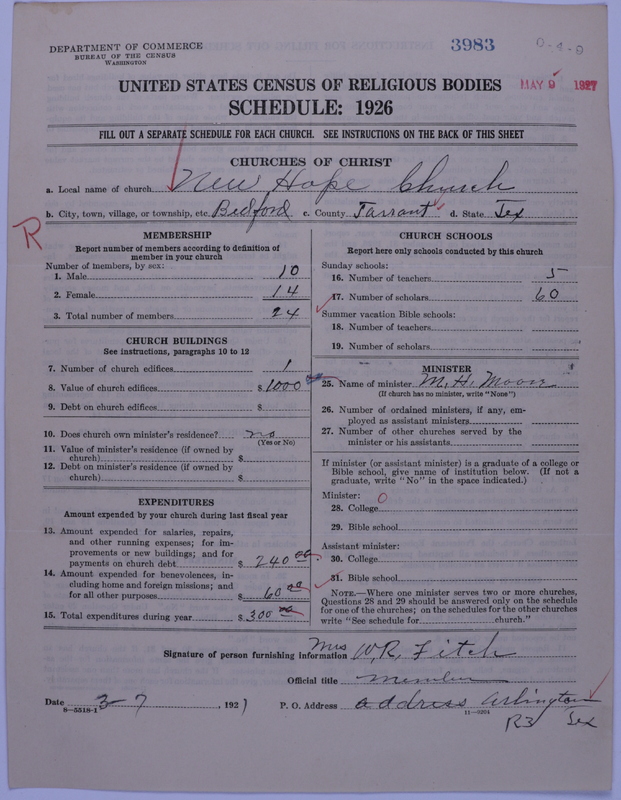 DEPARTMENT OF COMMERCE
BUREAU OF THE CENSUS
WASHINGTON
3983
0-4-9
UNITED STATES CENSUS OF RELIGIOUS BODIES
MAY 9 1927
SCHEDULE: 1926
FILL OUT A SEPARATE SCHEDULE FOR EACH CHURCH. SEE INSTRUCTIONS ON THE BACK OF THIS SHEET
CHURCHES OF CHRIST
a. Local name of church New Hope Church
b. City, town, village, or township, etc. Bedford c. County Tarrant d. State Tex
R
MEMBERSHIP
Report number of members according to definition of
member in your church
Number of members, by sex:
1. Male 10
2. Female 14
3. Total number of members 24
CHURCH BUILDINGS
See instructions, paragraphs 10 to 12
7. Number of church edifices 1
8. Value of church edifices $1000
9. Debt on church edifices $
10. Does church own minister's residence? no
(Yes or No)
11. Value of minister's residence (if owned by
church) $
12. Debt on minister's residence (if owned by
church) $
EXPENDITURES
Amount expended by your church during last fiscal year
13. Amount expended for salaries, repairs,
and other running expenses; for im-
provements or new buildings; and for
payments on church debt $ 240 00
14. Amount expended for benevolences, in-
cluding home and foreign missions; and
for all other purposes $ 60 00
15. Total expenditures during year $ 300 00
CHURCH SCHOOLS
Report here only schools conducted by this church
Sunday schools:
16. Number of teachers 5
17. Number of scholars 60
Summer vacation Bible schools:
18. Number of teachers
19. Number of scholars
MINISTER
25. Name of minister M. H. Moore
(If church has no minister, write "None")
26. Number of ordained ministers, if any, em-
ployed as assistant ministers
27. Number of other churches served by the
minister or his assistants
If minister (or assistant minister) is a graduate of a college or
Bible school, give name of institution below. (If not a
graduate, write "No" in the space indicated.)
Minister: 0
28. College
29. Bible school
Assistant minister:
30. College
31. Bible school
NOTE.—Where one minister serves two or more churches,
Questions 28 and 29 should be answered only on the schedule
for one of the churches; on the schedules for the other churches
write "See schedule for church."
Signature of person furnishing information Mrs W. R. Fitch
Official title member
Date 3-7, 1927 P. O. Address address Arlington
8-5518-1
11-9204
R3 Tex